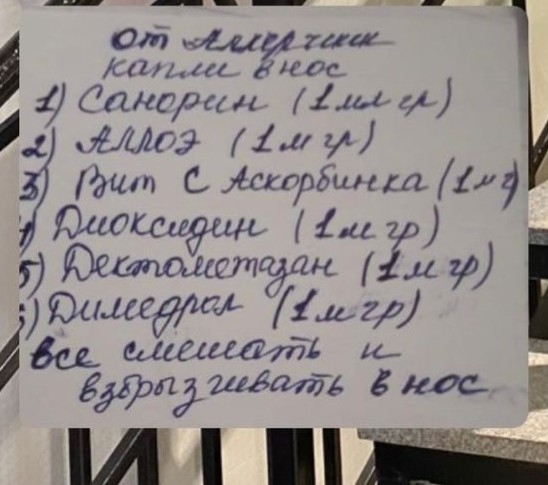 от Аллергии
капли в нос
1) Санорин (1 мл гр)
2) Аллоэ (1 м гр)
3) Вит С Аскорбинка (1 м г
) Диоксидин (1 м гр)
5) Дектометазан (1 м гр)
) Димедрол (1 м гр)
все смешать и
взбрызгивать в нос